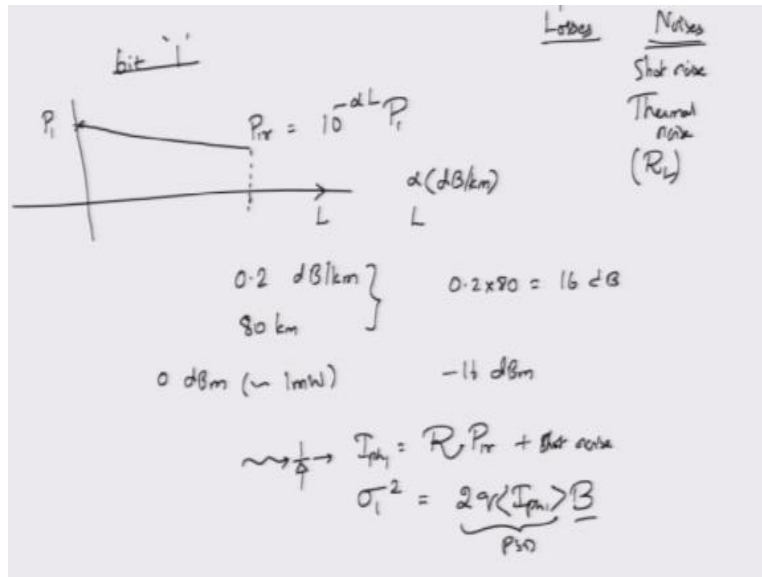 Losses Noises
bit '1'
Shot noise
Thermal
noise
(R_L)
P_1 P_1r = 10^{-αL} P_1
α(dB/km)
L L
0.2 dB/km } 0.2x80 = 16 dB
80 km
0 dBm (~ 1mW) -16 dBm
I_ph1 = R P_1r + shot noise
σ_1^2 = 2q<I_ph1>B
PSD